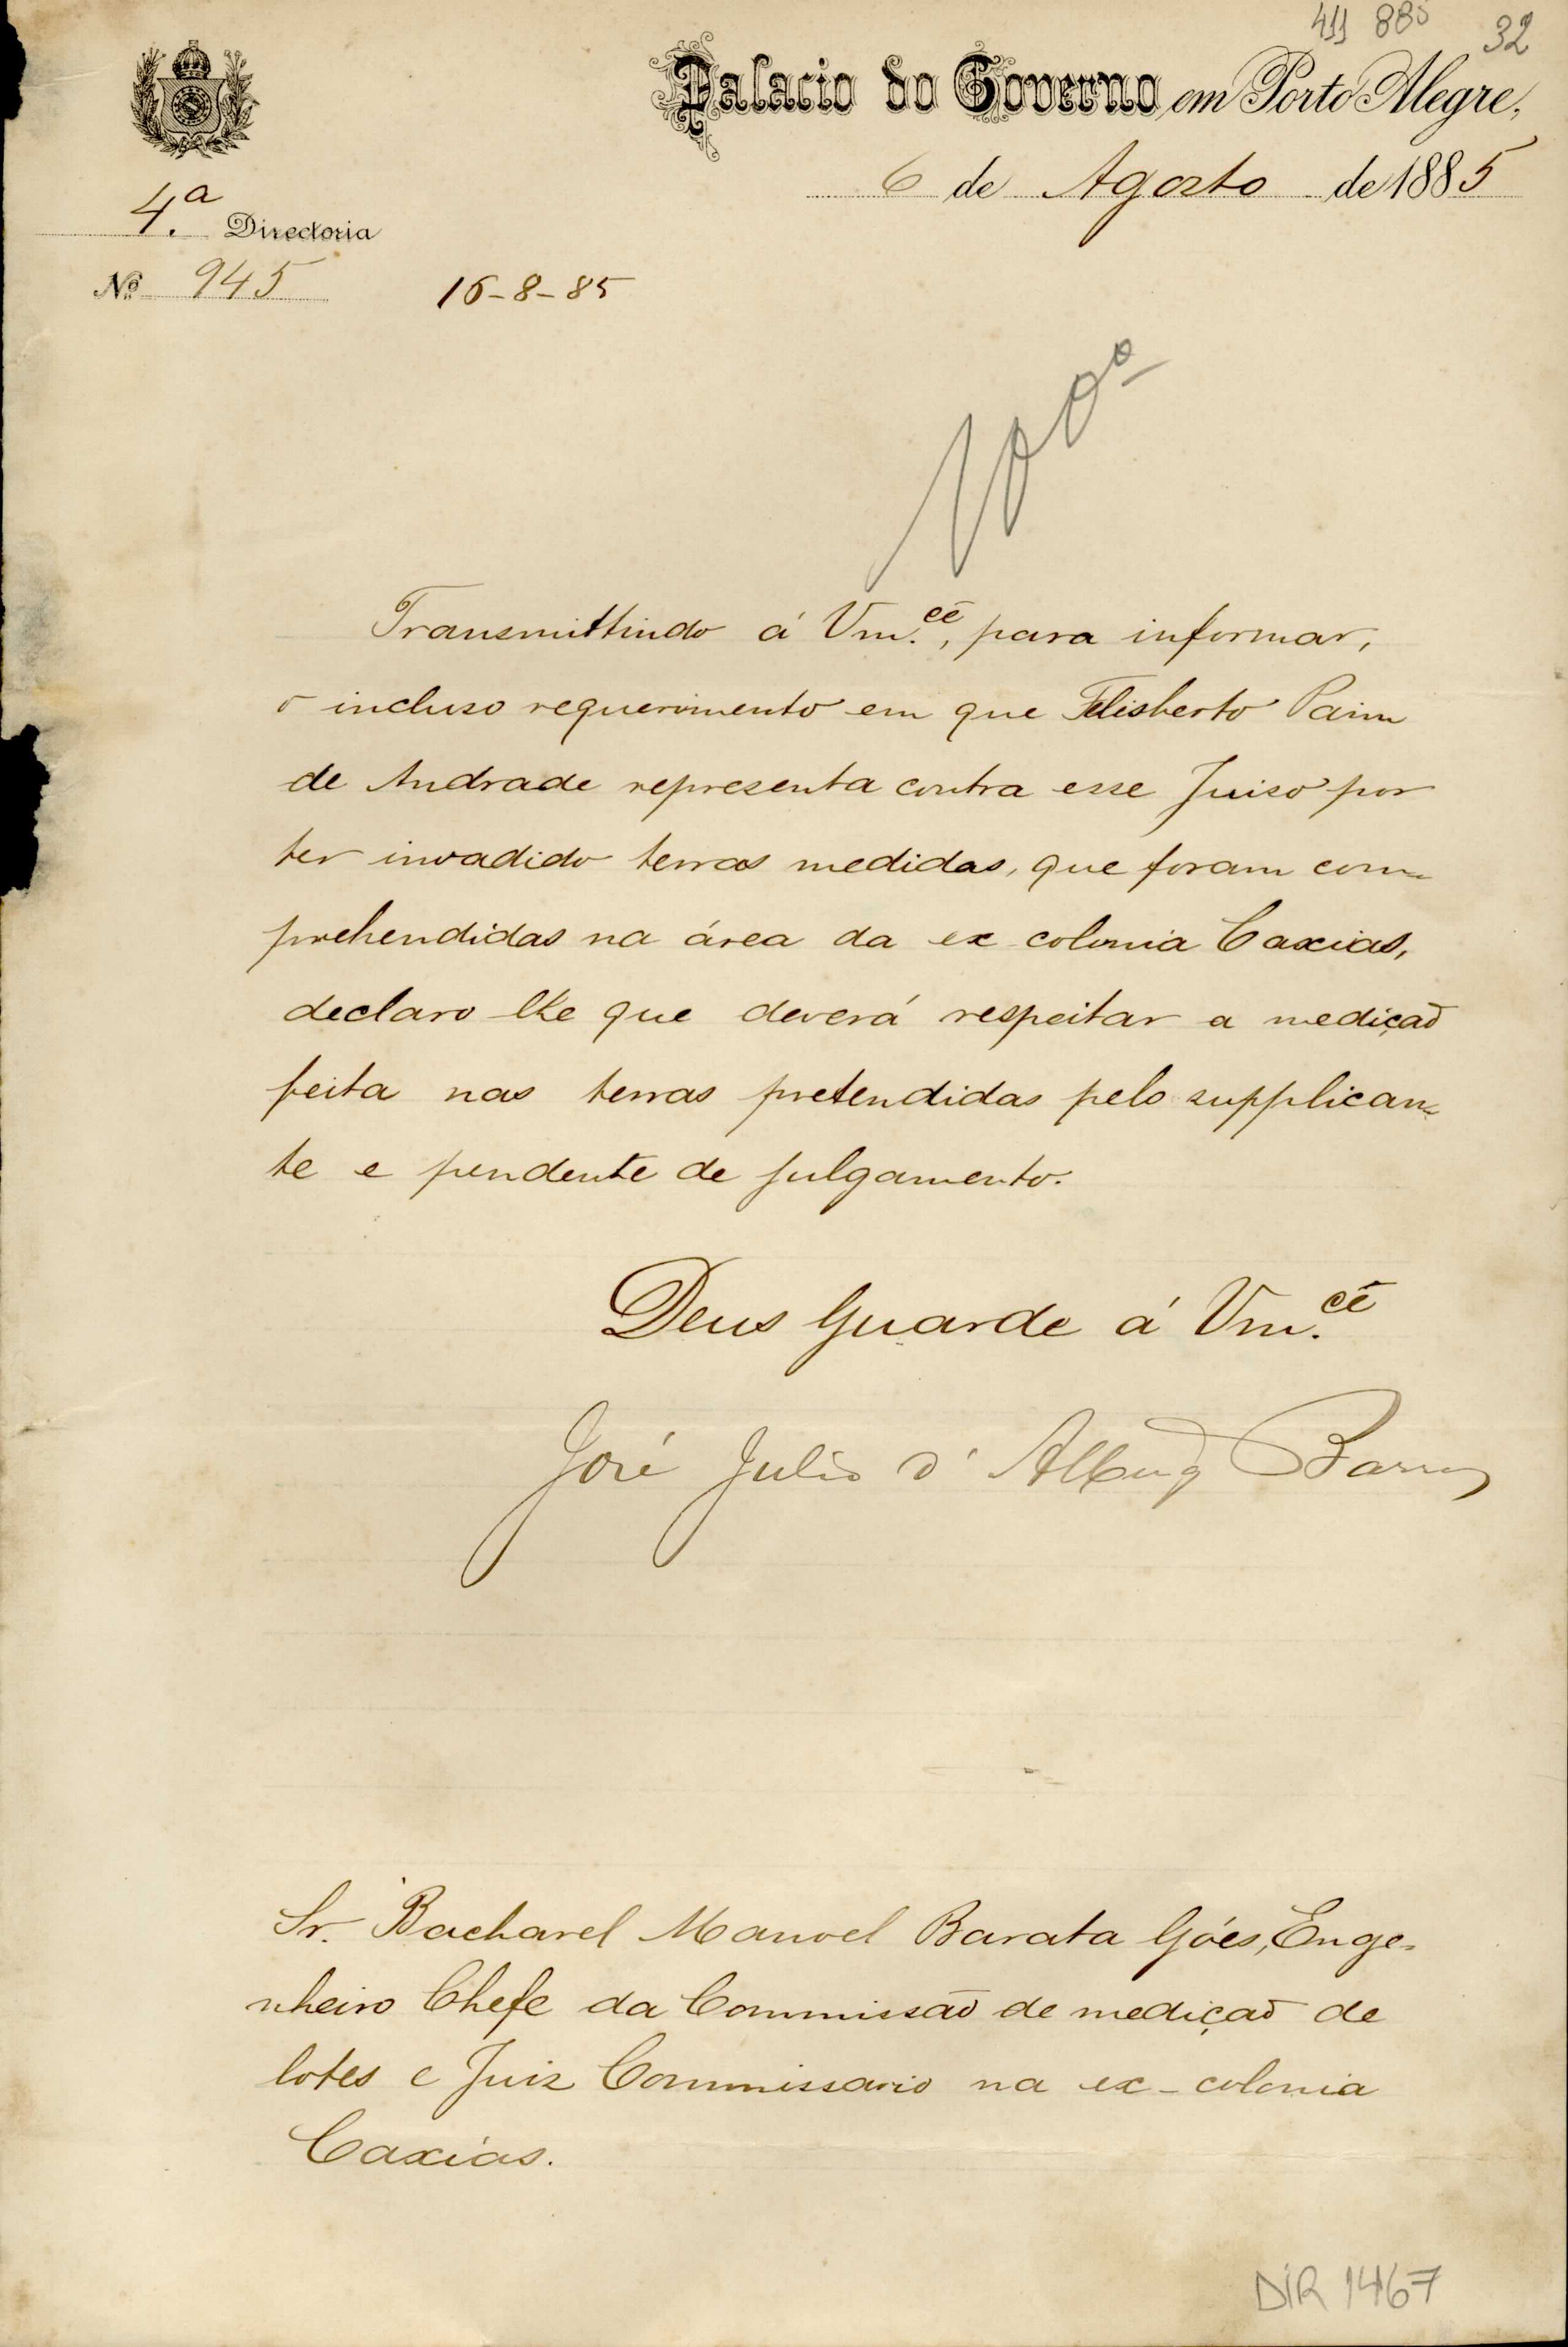 32
Palacio do Governo em Porto Alegre,
6 de Agosto de 1885
4.ª Directoria
Nº 945
16-8-85
Transmittindo á Vm.cê, para informar,
o incluso requerimento em que Felisberto Paim
de Andrade representa contra esse Juiso por
ter invadido terras medidas, que foram com-
prehendidas na área da ex colonia Caxias,
declaro-lhe que deverá respeitar a medição
feita nas terras pretendidas pelo supplican-
te e pendente de julgamento.
Deus Guarde á Vm.cê
José Julio d'Albuq Barros
Sr. Bacharel Manoel Barata Góes, Enge-
nheiro Chefe da Commissão de medição de
lotes e Juiz Commissario na ex-colonia
Caxias.
DIR 1467